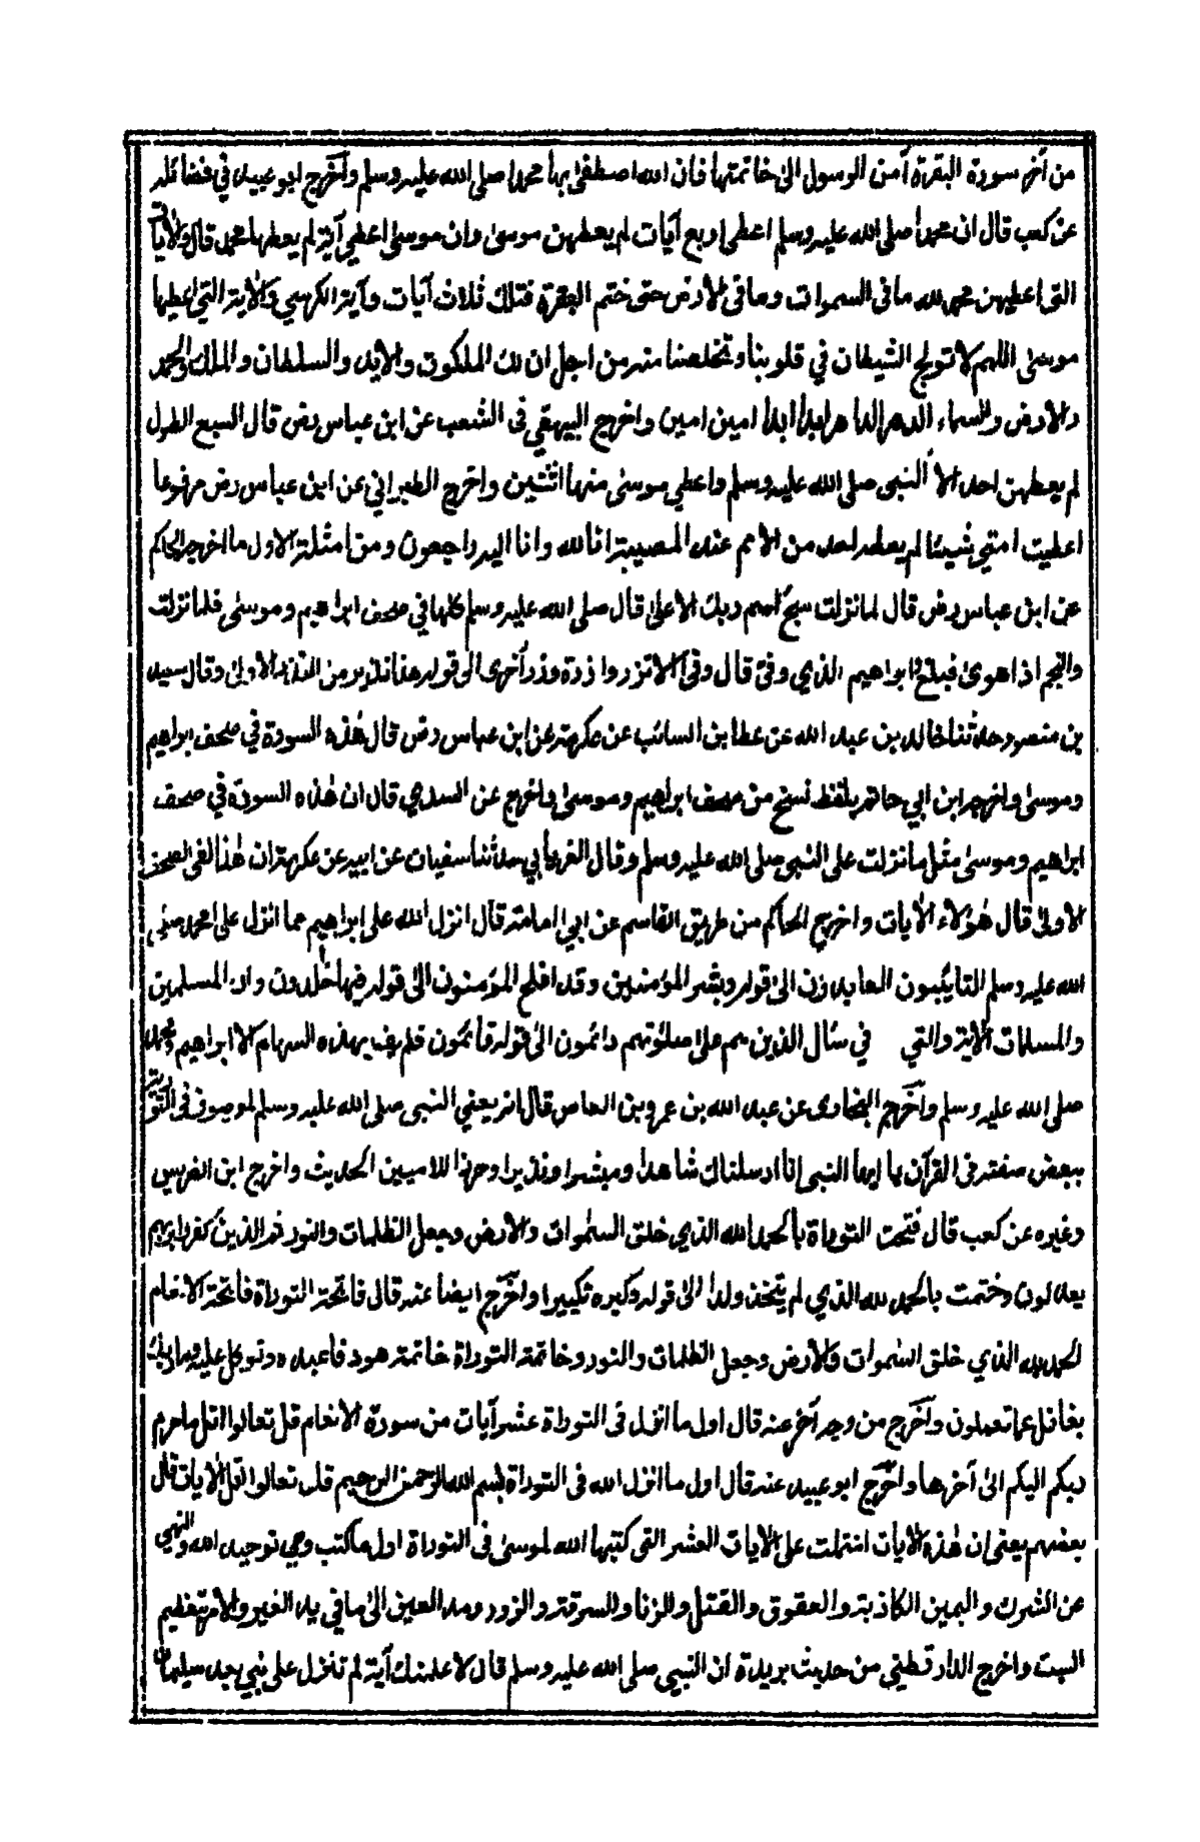 من آخر سورة البقرة آمن الرسول الى خاتمتها فان الله اصطفى بها محمدا صلى الله عليه وسلم وأخرج ابو عبيد في فضائله
عن كعب قال ان محمدا صلى الله عليه وسلم اعطى اربع آيات لم يعطهن موسى وان موسى اعطي آية لم يعطها محمد قال والآيات
التى اعطيهن محمد لله مافى السموات ومافى الارض حتى ختم البقرة فتلك ثلاث آيات وآية الكرسي والآية التي اعطيها
موسى اللهم لا تولج الشيطان في قلوبنا وتخلصنا منه من اجل ان لك الملكوت والايد والسلطان والملك والحمد
والارض والسماء الدهر الداهر ابدا ابدا امين امين واخرج البيهقي فى الشعب عن ابن عباس رض قال السبع الطول
لم يعطهن احد الا النبى صلى الله عليه وسلم واعطي موسى منها اثنتين واخرج الطبراني عن ابن عباس رض مرفوعا
اعطيت امتي شيئا لم يعطه احد من الامم عند المصيبة انا لله وانا اليه راجعون ومن امثلة الاول ما اخرجه الحاكم
عن ابن عباس رض قال لما نزلت سبح اسم ربك الاعلى قال صلى الله عليه وسلم كلها في صحف ابراهيم وموسى فلما نزلت
والنجم اذا هوى فبلغ وابراهيم الذي وفى قال وفى الا تزر وازرة وزر أخرى الى قوله هذا نذير من النذر الاولى وقال سعيد
بن منصور حدثنا خالد بن عبد الله عن عطا بن السائب عن عكرمة عن ابن عباس رض قال هذه السورة في صحف ابراهيم
وموسى واخرجه ابن ابي حاتم بلفظ نسخ من صحف ابراهيم وموسى واخرج عن السدي قال ان هذه السورة في صحف
ابراهيم وموسى مثل ما نزلت على النبى صلى الله عليه وسلم وقال الفريابي حدثنا سفيات عن ابيه عن عكرمة ان هذا لفى الصحف
الاولى قال هؤلاء الآيات واخرج الحاكم من طريق القاسم عن ابي امامة قال انزل الله على ابراهيم مما انزل على محمد صلى
الله عليه وسلم التائبون العابدون الى قوله وبشر المؤمنين وقد افلح المؤمنون الى قوله فيها خلدون وان المسلمين
والمسلمات الآية والتي في سأل الذين هم على صلوتهم دائمون الى قوله قائمون فلم يف بهذه السهام الا ابراهيم ومحمد
صلى الله عليه وسلم وأخرج البخارى عن عبد الله بن عمرو بن العاص قال انه يعني النبى صلى الله عليه وسلم لموصوف فى التورية
ببعض صفته فى القرآن يا ايها النبى انا ارسلناك شاهدا ومبشرا ونذيرا وحرزا للاميين الحديث واخرج ابن الضريس
وغيره عن كعب قال فتحت التوراة بالحمد لله الذي خلق السموات والارض وجعل الظلمات والنور ثم الذين كفروا بربهم
يعدلون وختمت بالحمد لله الذي لم يتخذ ولدا الى قوله وكبره تكبيرا واخرج ايضا عنه قال فاتحة التوراة فاتحة الانعام
الحمد لله الذي خلق السموات والارض وجعل الظلمات والنور وخاتمة التوراة خاتمة هود فاعبده وتوكل عليه وما ربك
بغافل عما تعملون وأخرج من وجه آخر عنه قال اول ما انزل فى التوراة عشر آيات من سورة الانعام قل تعالوا اتل ما حرم
ربكم اليكم الى آخرها واخرج ابو عبيد عنه قال اول ما انزل الله فى التوراة بسم الله الرحمن الرحيم قل تعالوا اتل الآيات قال
بعضهم يعنى ان هذه الآيات اشتملت على الآيات العشر التى كتبها الله لموسى فى التوراة اول ما كتب وهي توحيد الله والنهي
عن الشرك واليمين الكاذبة والعقوق والقتل والزنا والسرقة والزور ومد العين الى ما في يد الغير والامر بتعظيم
السبت واخرج الدارقطني من حديث بريدة ان النبي صلى الله عليه وسلم قال لاعلمنك آية لم تنزل على نبي بعد سليمان